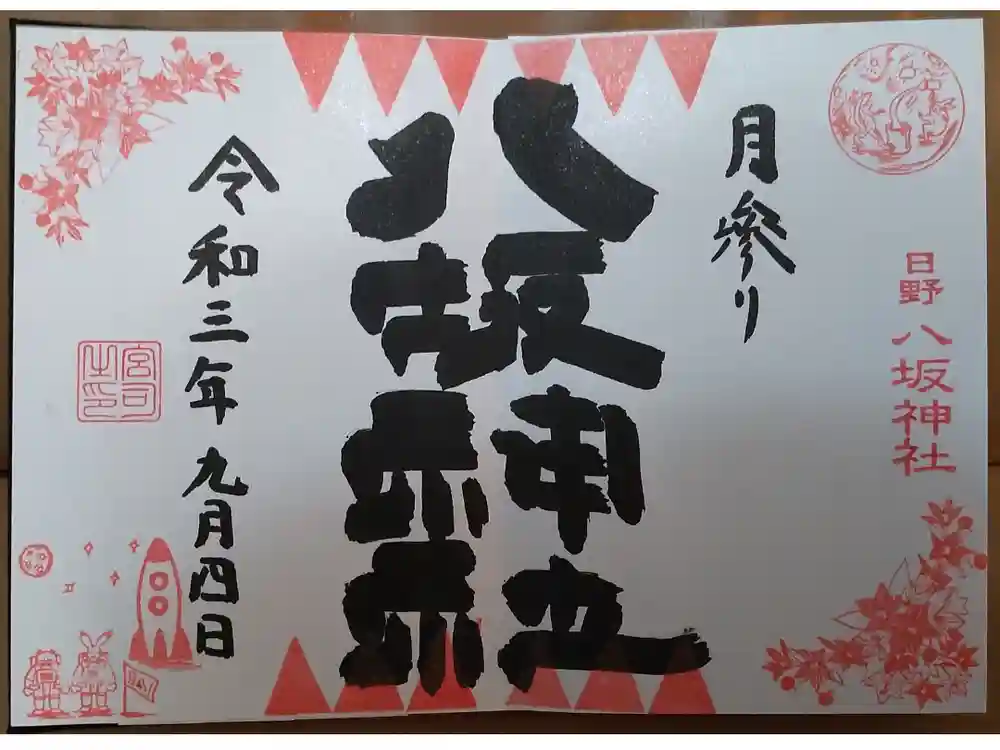 月参り
日野 八坂神社
八坂神社
令和三年九月四日
宮司之印